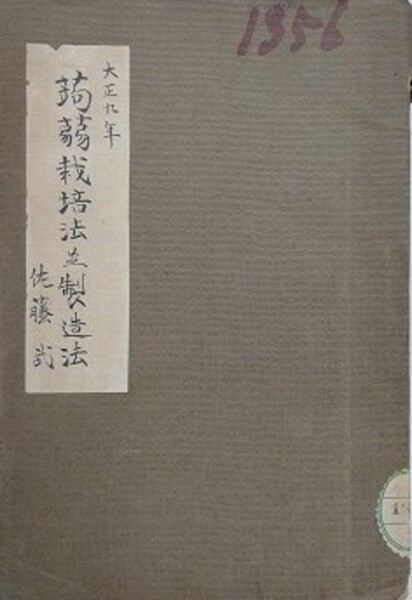 1356
大正九年
蒟蒻栽培法並製造法
佐藤武